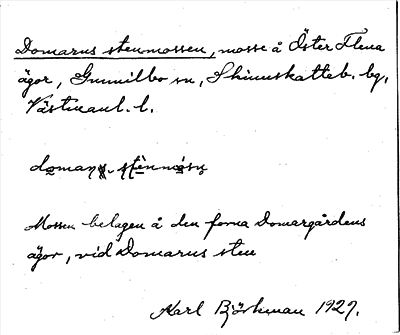 Domarus stenmossen, mosse å Öster Flena
ägor, Gunnilbo sn, Skinnskatteb. bg,
Västmanl. l.
Mossen belagen å den forna Domargårdens
ägor, vid Domarus sten
Karl Björkman 1927.